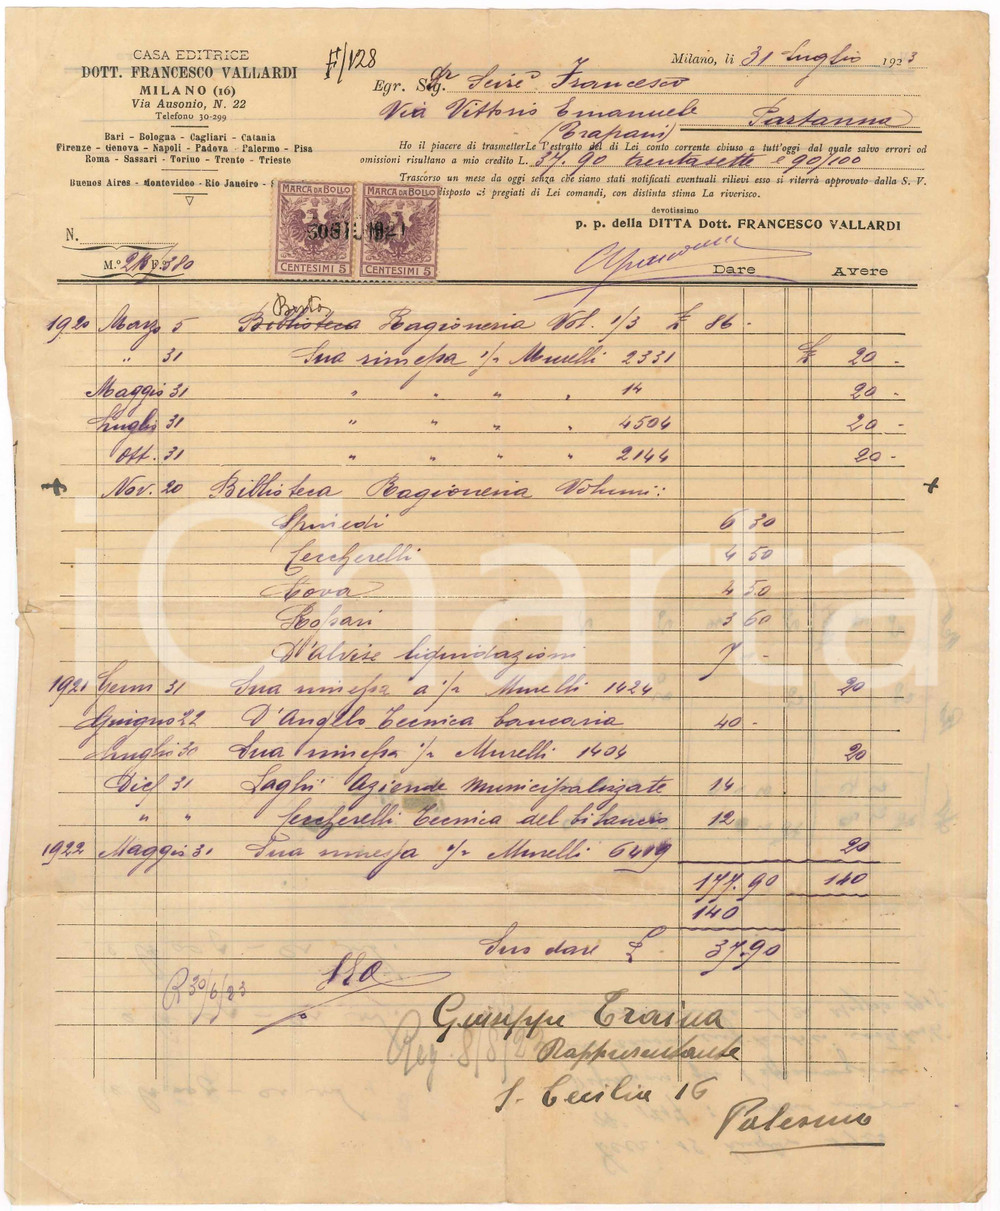 CASA EDITRICE
DOTT. FRANCESCO VALLARDI
MILANO (16)
Via Ausonio, N. 22
Telefono 30-299
Bari - Bologna - Cagliari - Catania
Firenze - Genova - Napoli - Padova - Palermo - Pisa
Roma - Sassari - Torino - Trento - Trieste
Buenos Aires - Montevideo - Rio Janeiro -
F/128
Milano, li 31 Luglio 1923
Egr. Sig. Francesco
Via Vittorio Emanuele Partanna
(Trapani)
Ho il piacere di trasmetterLe l'estratto del di Lei conto corrente chiuso a tutt'oggi dal quale salvo errori od
omissioni risultano a mio credito L. 37.90 trentasette e 90/100
Trascorso un mese da oggi senza che siano stati notificati eventuali rilievi esso si riterrà approvato dalla S. V.
disposto ai pregiati di Lei comandi, con distinta stima La riverisco.
devotissimo
p. p. della DITTA Dott. FRANCESCO VALLARDI
MARCA DA BOLLO MARCA DA BOLLO
CENTESIMI 5 CENTESIMI 5
N.
M.º F.º 380
Dare Avere
1920 Marzo 5 Biblioteca Ragioneria Vol. 1/3 £ 86 -
" 31 Sua rimessa 1/2 Murelli 2331 £ 20 -
Maggio 31 " " " " 14 20 -
Luglio 31 " " " " 4504 20 -
Ott. 31 " " " " 2144 20 -
Nov. 20 Biblioteca Ragioneria Volumi:
Spinedi 6 30
Ceccherelli 4 50
Tova 4 50
Rossari 3 60
D'Alvise liquidazioni 7 -
1921 Genn 31 Sua rimessa a 1/2 Murelli 1424 20
Giugno 22 D'Angelo Tecnica bancaria 40 -
Luglio 30 Sua rimessa 1/2 Murelli 1404 20
Dic 31 Laghi Aziende Municipalizzate 14
" " Ceccherelli Tecnica del bilancio 12
1922 Maggio 31 Sua rimessa 1/2 Murelli 6419 20
177.90 140
140
Suo dare £ 37.90
R 30/6/23
Giuseppe Traina
Reg 8/8/23
Rappresentante
S. Cecilia 16
Palermo
iCharta